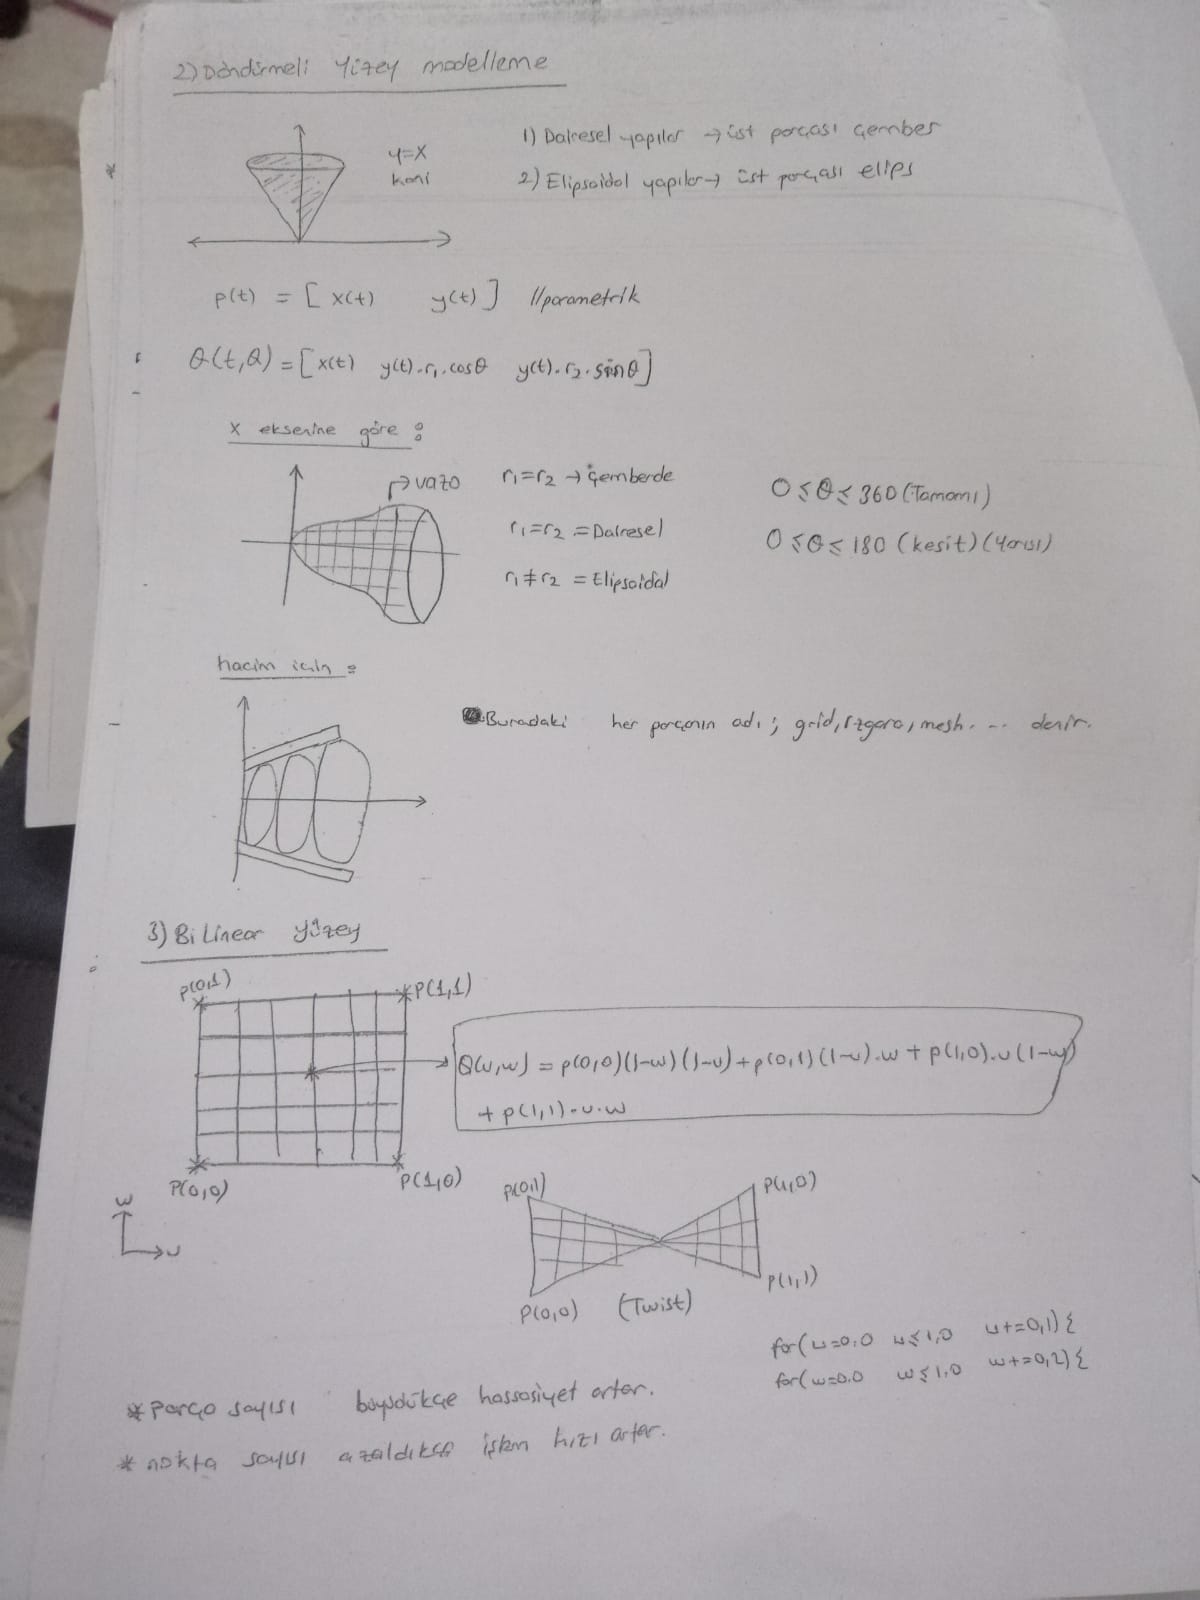 2) Döndürmeli Yüzey modelleme
y=x
koni
1) Dairesel yapılar → üst parçası çember
2) Elipsoidal yapılar → üst parçası elips
p(t) = [ x(t) y(t) ] //parametrik
Q(t,Q) = [ x(t) y(t).r₁.cosθ y(t).r₂.sinθ ]
x eksenine göre :
vazo
r₁=r₂ → çemberde
r₁=r₂ = Dairesel
r₁≠r₂ = Elipsoidal
0≤θ≤360 (Tamamı)
0≤θ≤180 (kesit) (Yarısı)
hacim için :
Buradaki her parçanın adı ; grid, ızgara, mesh. ... denir.
3) Bi Linear yüzey
p(0,1)
P(1,1)
Q(u,w) = p(0,0)(1-w)(1-u) + p(0,1)(1-u).w + p(1,0).u(1-w)
+ p(1,1).u.w
P(0,0)
P(1,0)
w
u
p(0,1)
p(1,0)
p(0,0)
(Twist)
p(1,1)
for(u=0,0 u≤1,0 u+=0,1) {
for(w=0.0 w≤1,0 w+=0,2) {
* parça sayısı büyüdükçe hassasiyet artar.
* nokta sayısı azaldıkça işlem hızı artar.